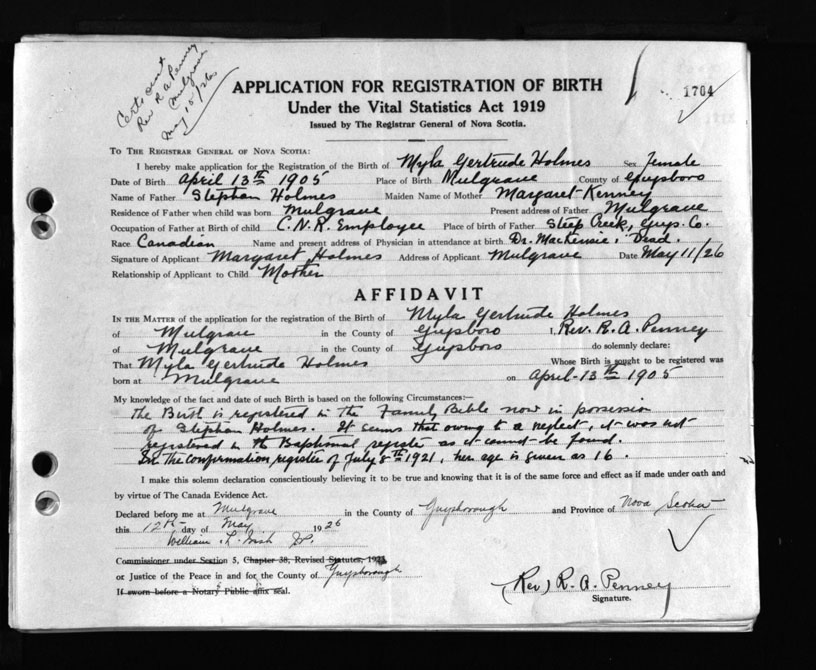 Certs sent
Rev R A Penney
Mulgrave
May 15/26
1704
APPLICATION FOR REGISTRATION OF BIRTH
Under the Vital Statistics Act 1919
Issued by The Registrar General of Nova Scotia.
To The Registrar General of Nova Scotia:
I hereby make application for the Registration of the Birth of Myla Gertrude Holmes Sex Female
Date of Birth April 13th 1905 Place of Birth Mulgrave County of Guysboro
Name of Father Stephan Holmes Maiden Name of Mother Margaret Kenney
Residence of Father when child was born Mulgrave Present address of Father Mulgrave
Occupation of Father at Birth of child C.N.R. Employee Place of birth of Father Steep Creek, Guys. Co.
Race Canadian Name and present address of Physician in attendance at birth Dr. MacKenzie, Dead.
Signature of Applicant Margaret Holmes Address of Applicant Mulgrave Date May 11/26
Relationship of Applicant to Child Mother
AFFIDAVIT
In the Matter of the application for the registration of the Birth of Myla Gertrude Holmes
of Mulgrave in the County of Guysboro I, Rev. R. A. Penney
of Mulgrave in the County of Guysboro do solemnly declare:
That Myla Gertrude Holmes Whose Birth is sought to be registered was
born at Mulgrave on April-13th 1905
My knowledge of the fact and date of such Birth is based on the following Circumstances:—
The Birth is registered in the Family Bible now in possession
of Stephan Holmes. It seems that owing to a neglect, it was not
registered in the Baptismal register as it cannot be found.
In the confirmation register of July 8th 1921, her age is given as 16.
I make this solemn declaration conscientiously believing it to be true and knowing that it is of the same force and effect as if made under oath and
by virtue of The Canada Evidence Act.
Declared before me at Mulgrave in the County of Guysborough and Province of Nova Scotia
this 12th day of May 1926
William L. Irish J.P.
Commissioner under Section 5, Chapter 38, Revised Statutes, 1923
or Justice of the Peace in and for the County of Guysborough
If sworn before a Notary Public affix seal.
(Rev) R. A. Penney
Signature.